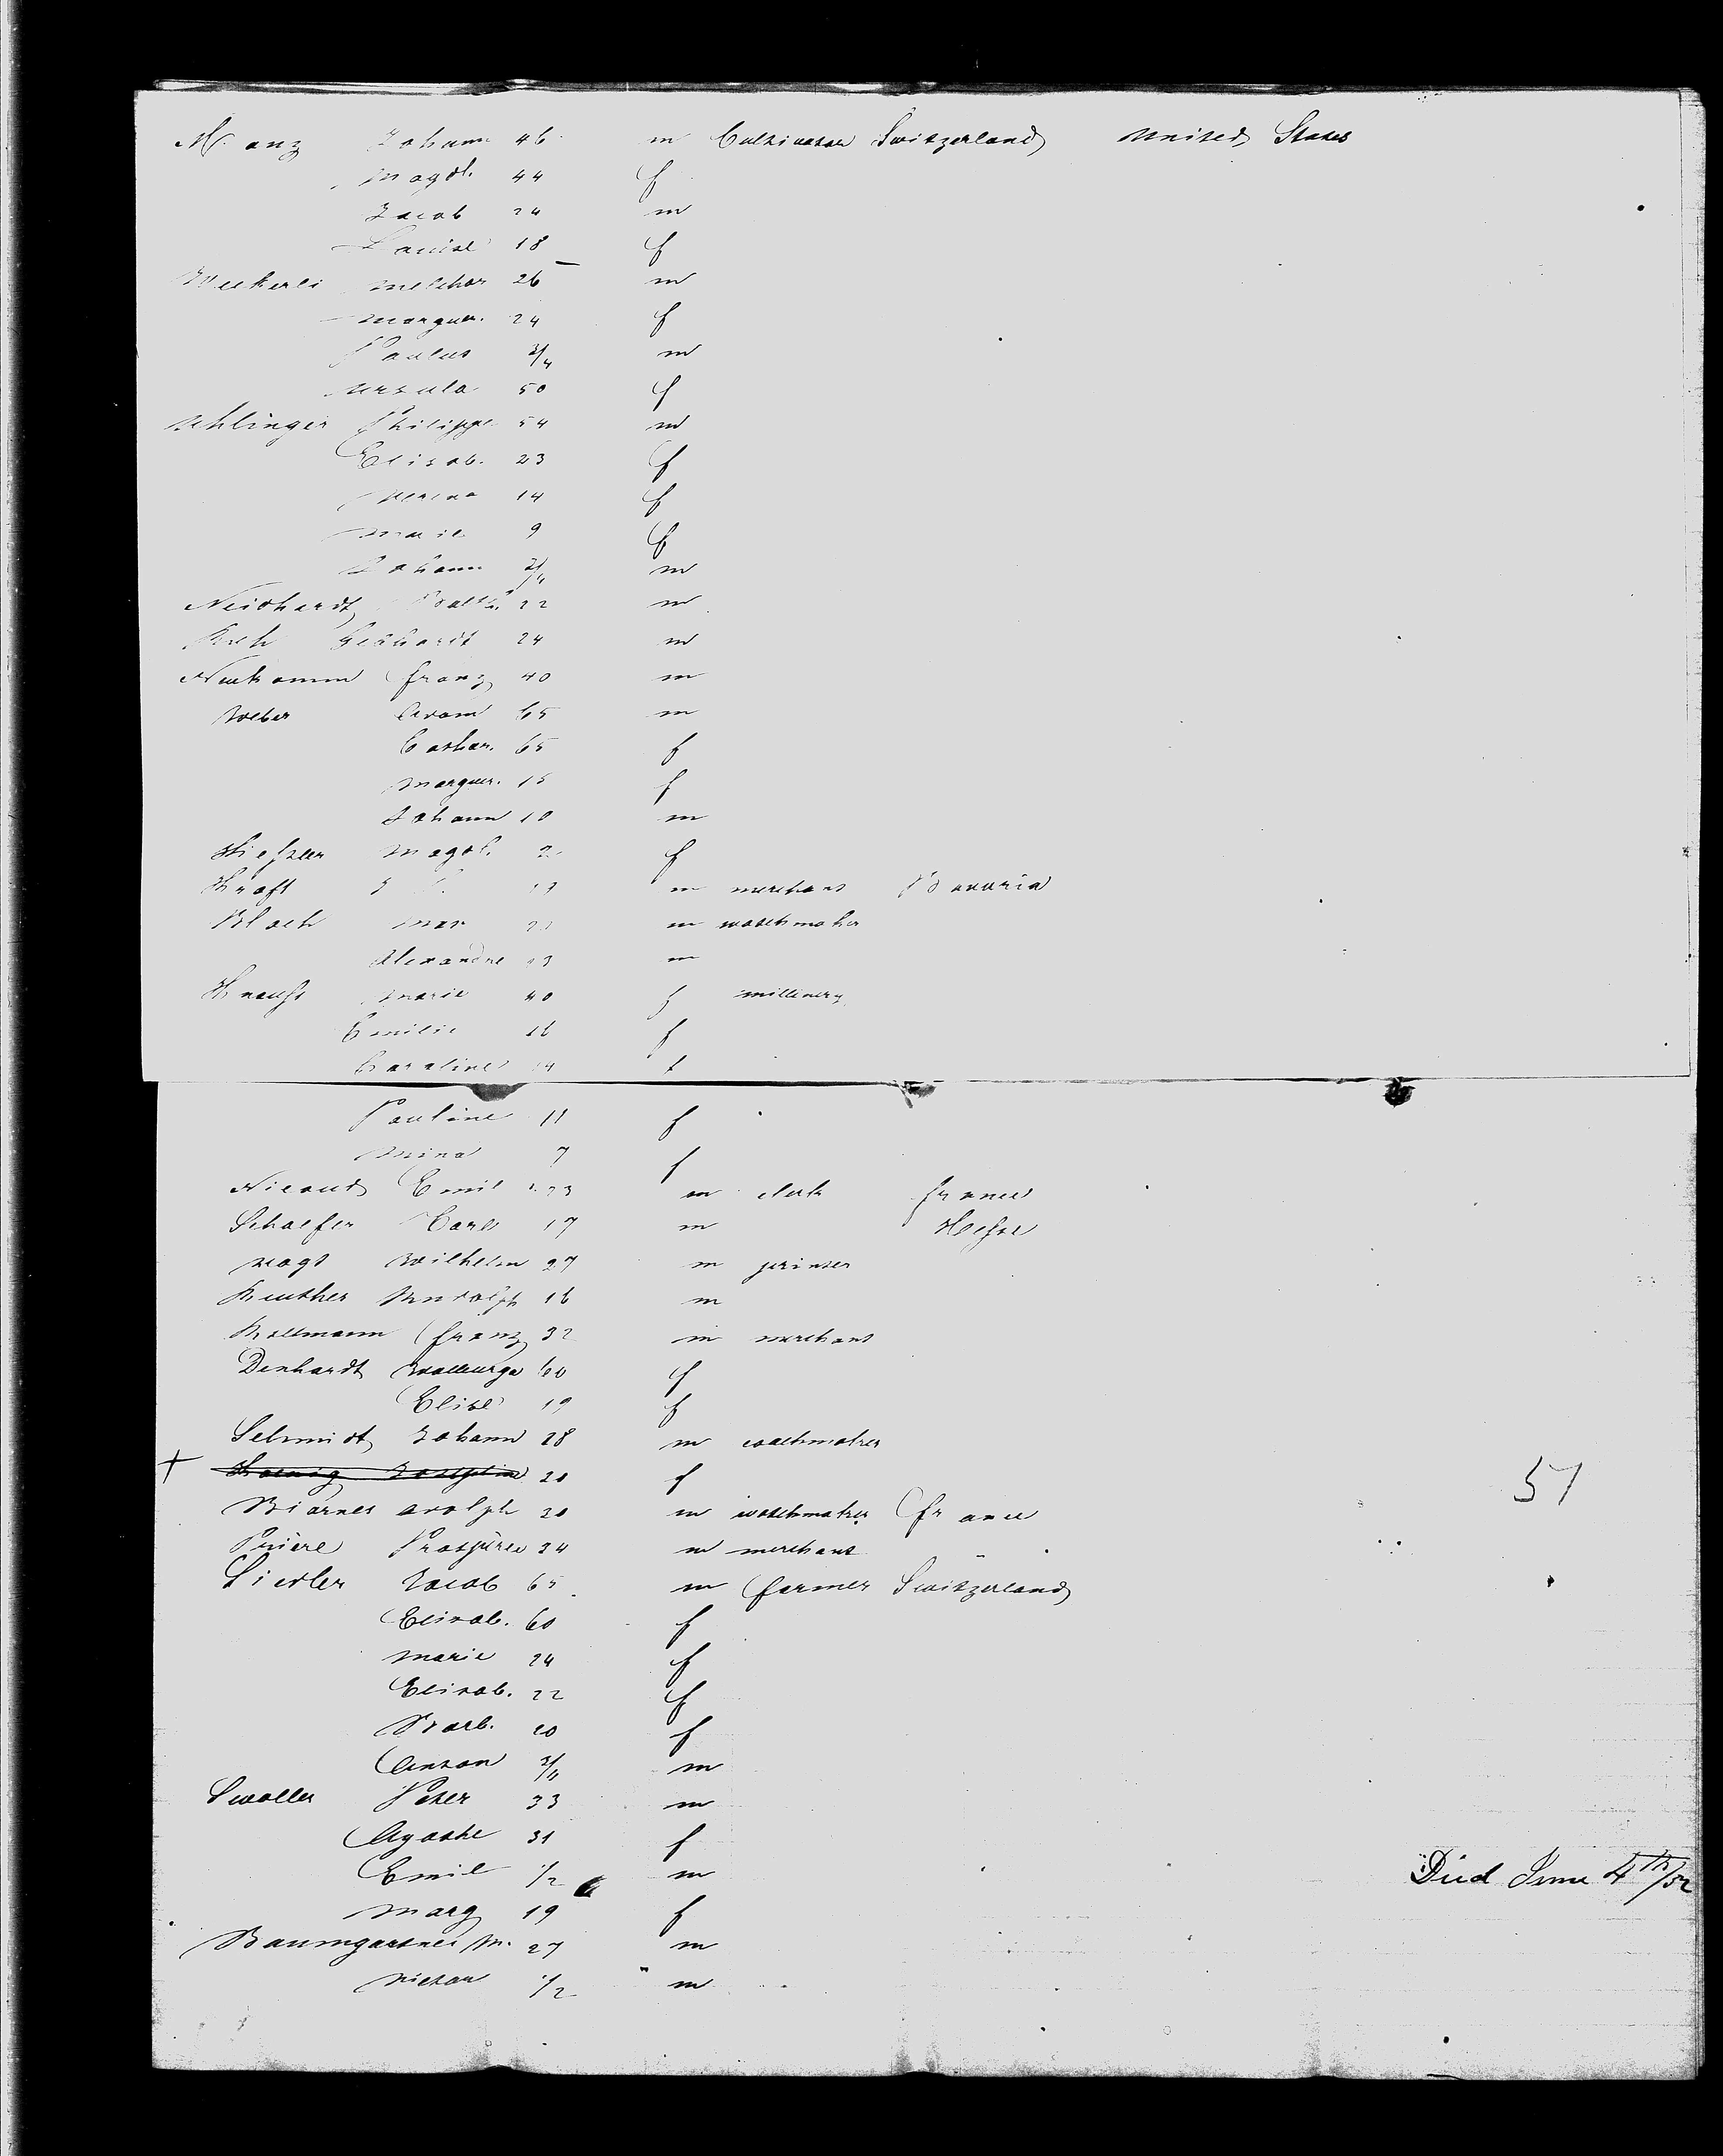 Manz Johann 46 m Cultivator Switzerland United States
Magdl. 44 f
Jacob 24 m
Louise 18 f
Melchor 26 m
Marguer. 24 f
Paulus 3/4 m
Ursula 50 f
Uhlinger Philippe 54 m
Elisab. 23 f
Verena 14 f
Marie 9 f
Johann 3/4 m
Neidhardt Balth. 22 m
Gebhardt 24 m
Neukomm Franz 40 m
Weber Adam 65 m
Cathar. 65 f
Marguer. 15 f
Johann 10 m
Magdl. f
Kraft m merchant Bavaria
Bloch Max m watchmaker
Alexandre m
Krauss Marie 40 f millinery
Emilie 16 f
Caroline f
Pauline 11 f
Mina 7 f
Nicoud Emil 23 m clerk France
Schaefer Carl 17 m Hesse
Vogt Wilhelm 27 m printer
Reuther Rudolph 16 m
Franz 32 m merchant
Denhardt Walburga 60 f
Elise 19 f
Schmidt Johann 28 m watchmaker
+ Koenig Josephine 20 f
Adolph 20 m watchmaker France
57
34 m merchant
Siedler Jacob 65 m farmer Switzerland
Elisab. 60 f
Marie 24 f
Elisab. 22 f
Barb. 20 f
Anton 3/4 m
Peter 33 m
Agathe 31 f
Emil 1/2 m Died June 4th/52
Marg 19 f
Baumgartner M. 27 m
Victor 1/2 m